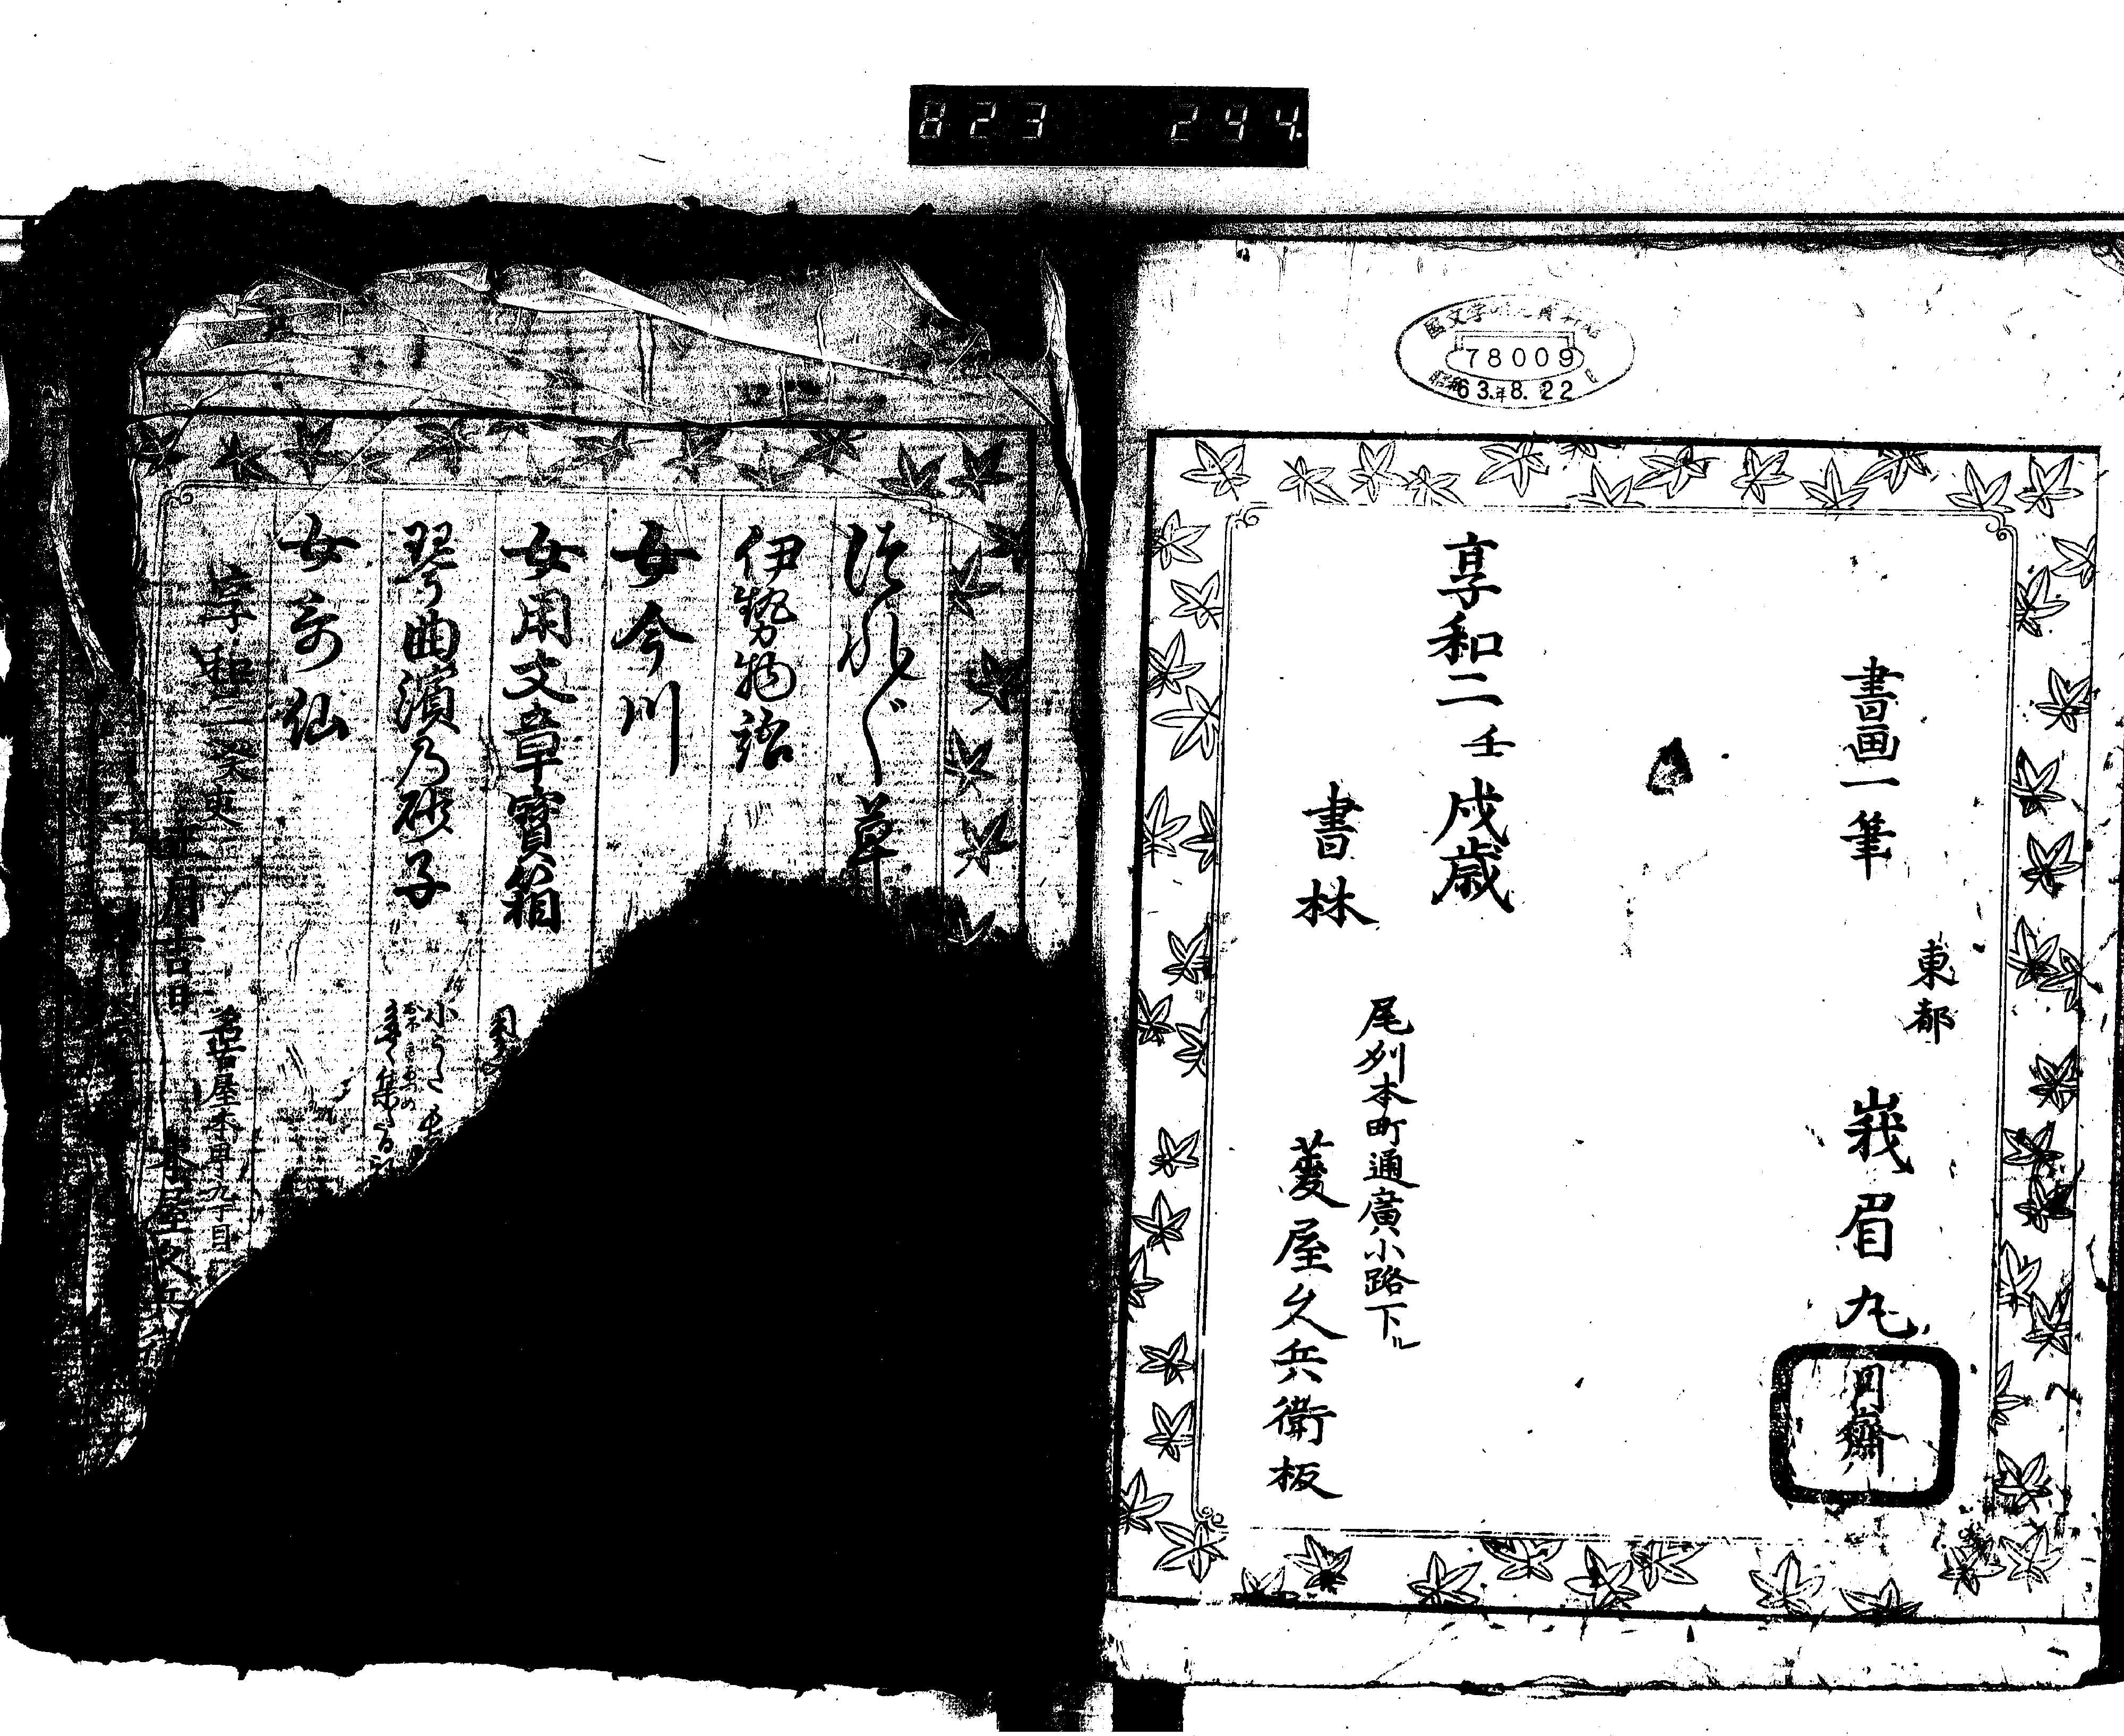 823 294
78009
63.年8.22
書画一筆
東都
峩眉丸
月齋
享和二壬戌歳
書林
尾州本町通廣小路下ル
菱屋久兵衛板
つれ〴〵草
伊勢物語
女今川
女用文章寳箱
琴曲濱乃砂子
女哥仙
享和三癸亥
正月吉日
名古屋本町九丁目
屋久兵